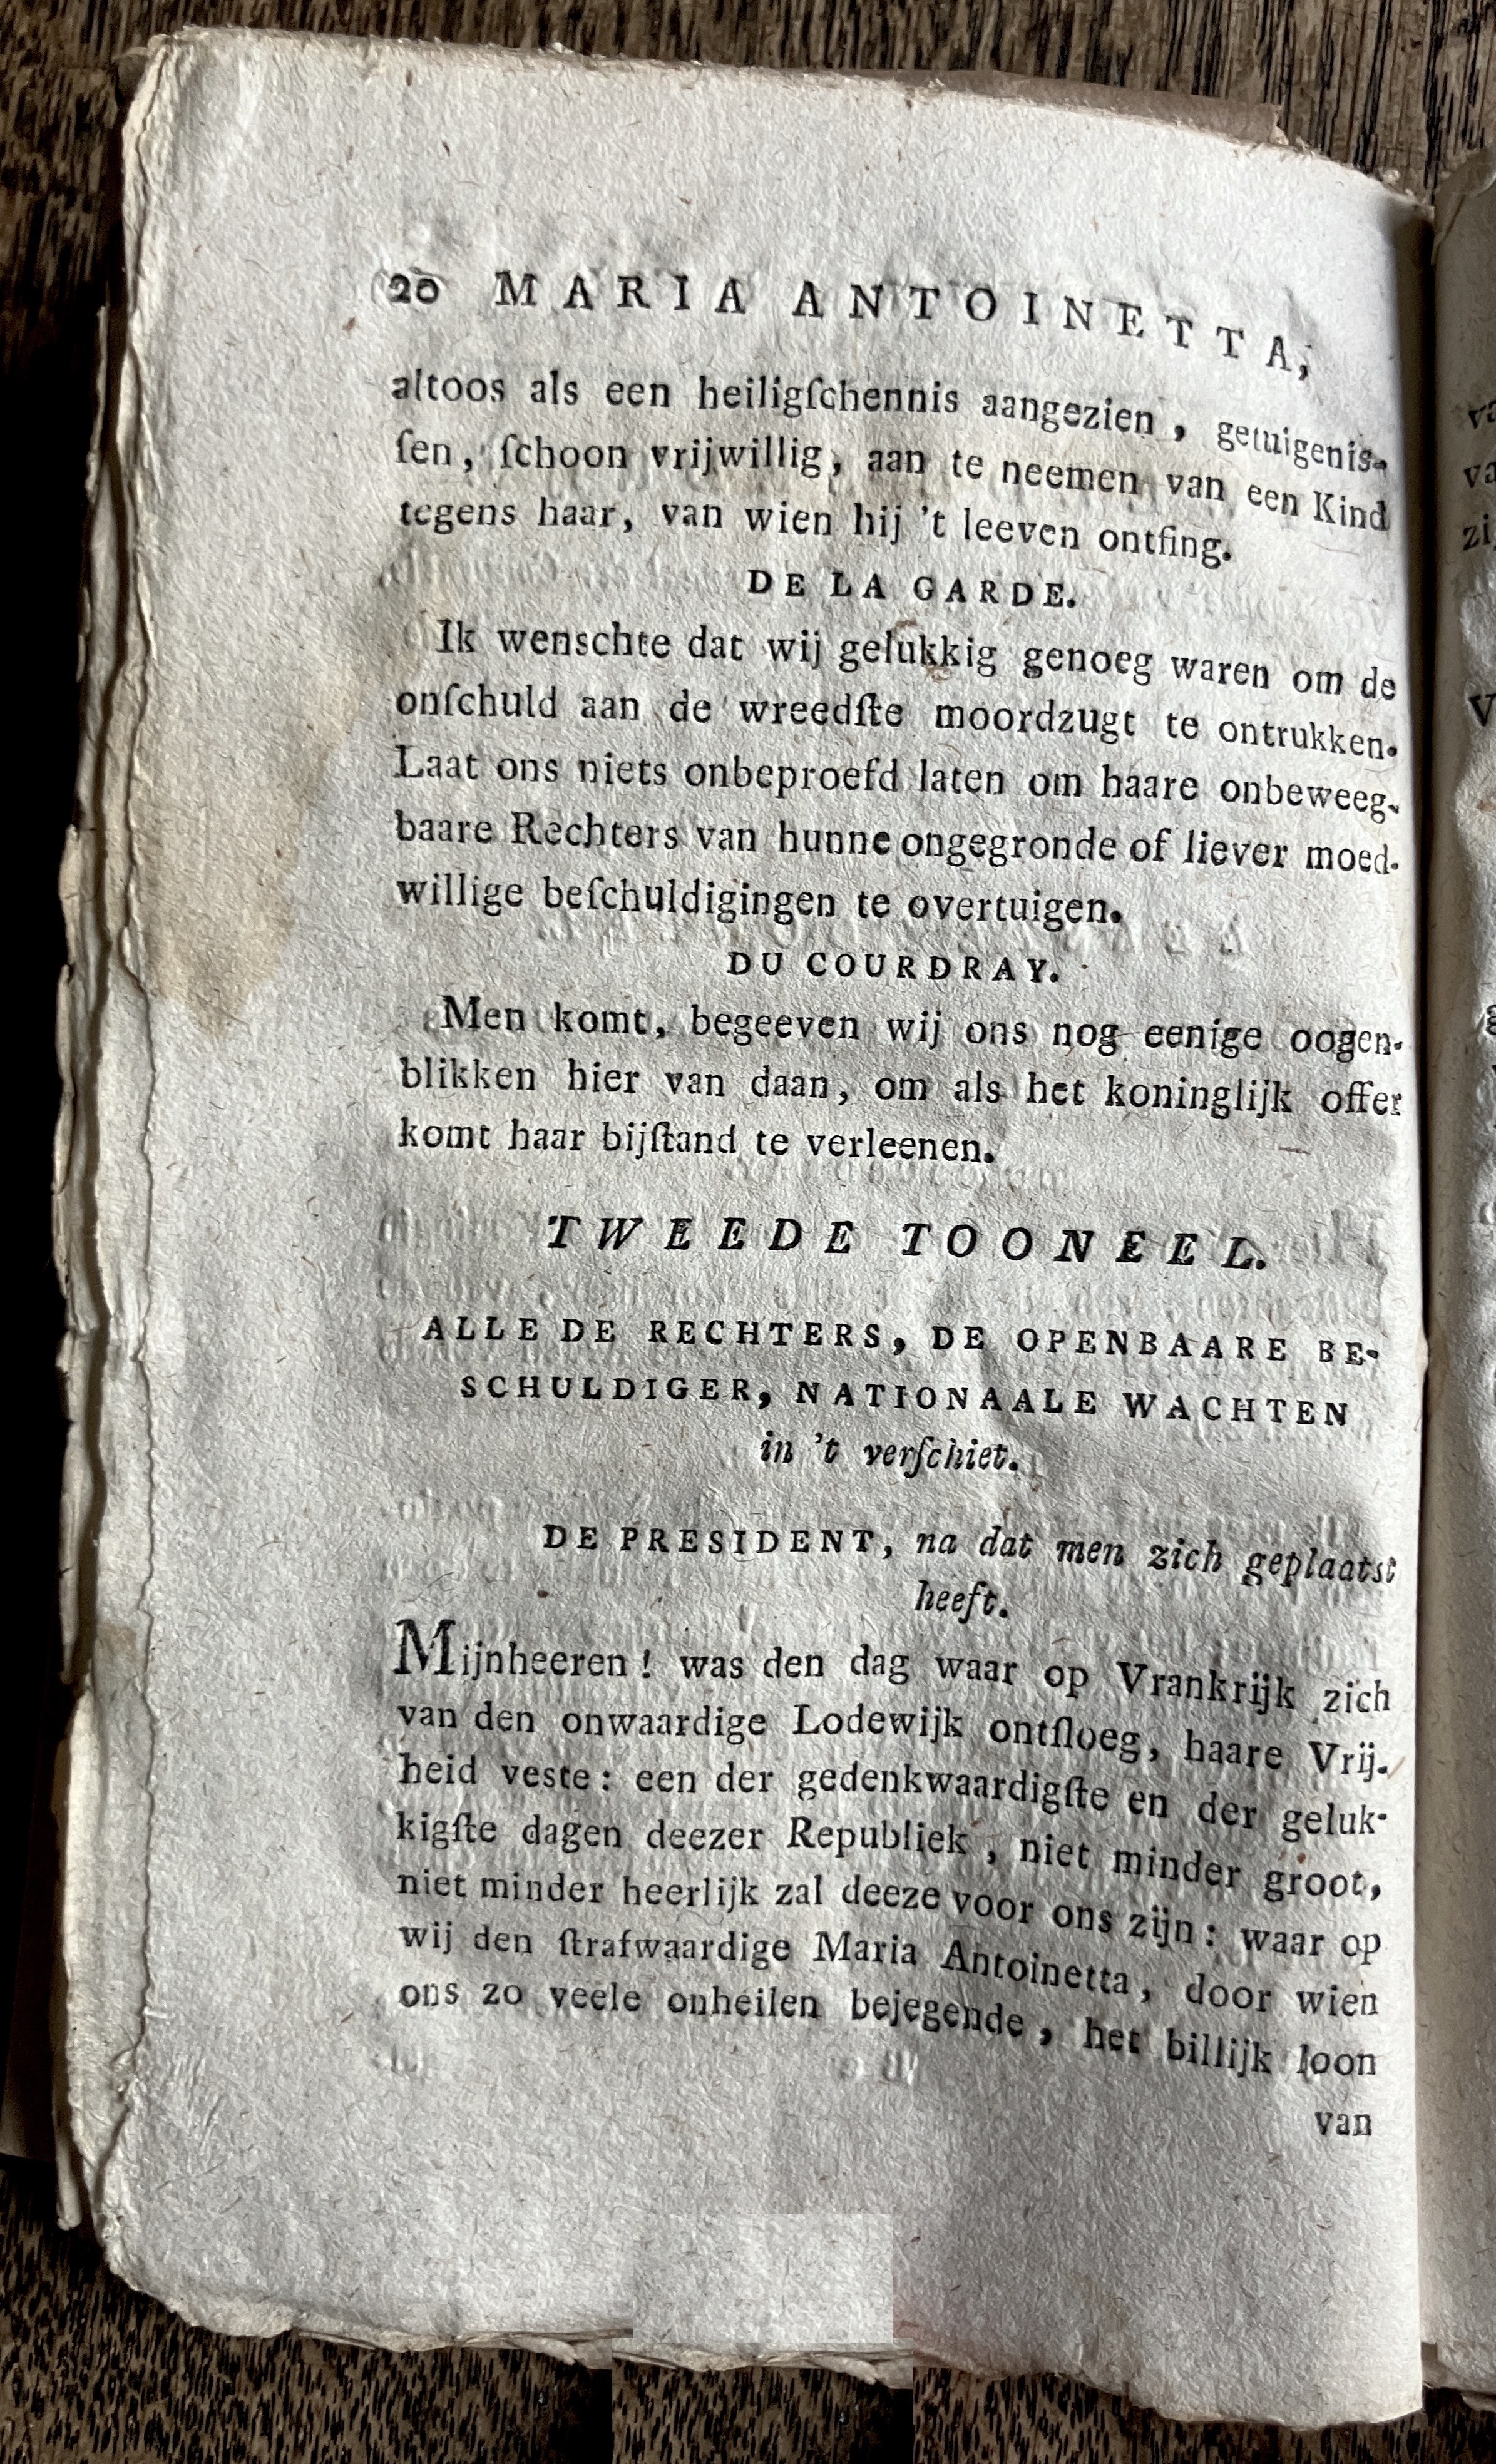 20 MARIA ANTOINETTA,
altoos als een heiligſchennis aangezien, getuigenis-
ſen, ſchoon vrijwillig, aan te neemen van een Kind
tegens haar, van wien hij 't leeven ontfing.
DE LA GARDE.
Ik wenschte dat wij gelukkig genoeg waren om de
onſchuld aan de wreedſte moordzugt te ontrukken.
Laat ons niets onbeproefd laten om haare onbeweeg-
baare Rechters van hunne ongegronde of liever moed-
willige beſchuldigingen te overtuigen.
DU COURDRAY.
Men komt, begeeven wij ons nog eenige oogen-
blikken hier van daan, om als het koninglijk offer
komt haar bijſtand te verleenen.
TWEEDE TOONEEL.
ALLE DE RECHTERS, DE OPENBAARE BE-
SCHULDIGER, NATIONAALE WACHTEN
in 't verſchiet.
DE PRESIDENT, na dat men zich geplaatst
heeft.
Mijnheeren! was den dag waar op Vrankrijk zich
van den onwaardige Lodewijk ontſloeg, haare Vrij-
heid veste: een der gedenkwaardigſte en der geluk-
kigſte dagen deezer Republiek, niet minder groot,
niet minder heerlijk zal deeze voor ons zijn: waar op
wij den ſtrafwaardige Maria Antoinetta, door wien
ons zo veele onheilen bejegende, het billijk loon
van